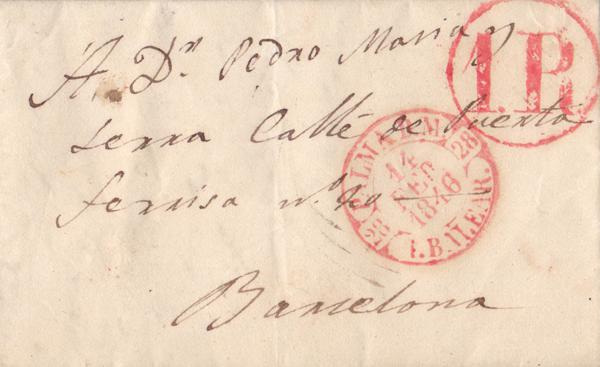 A. Dn Pedro Maria y
1R
Serra Calle de Puerta
ferrisa no 20
PALMA M.
28
14
1846
28
I. BALEAR.
Barcelona